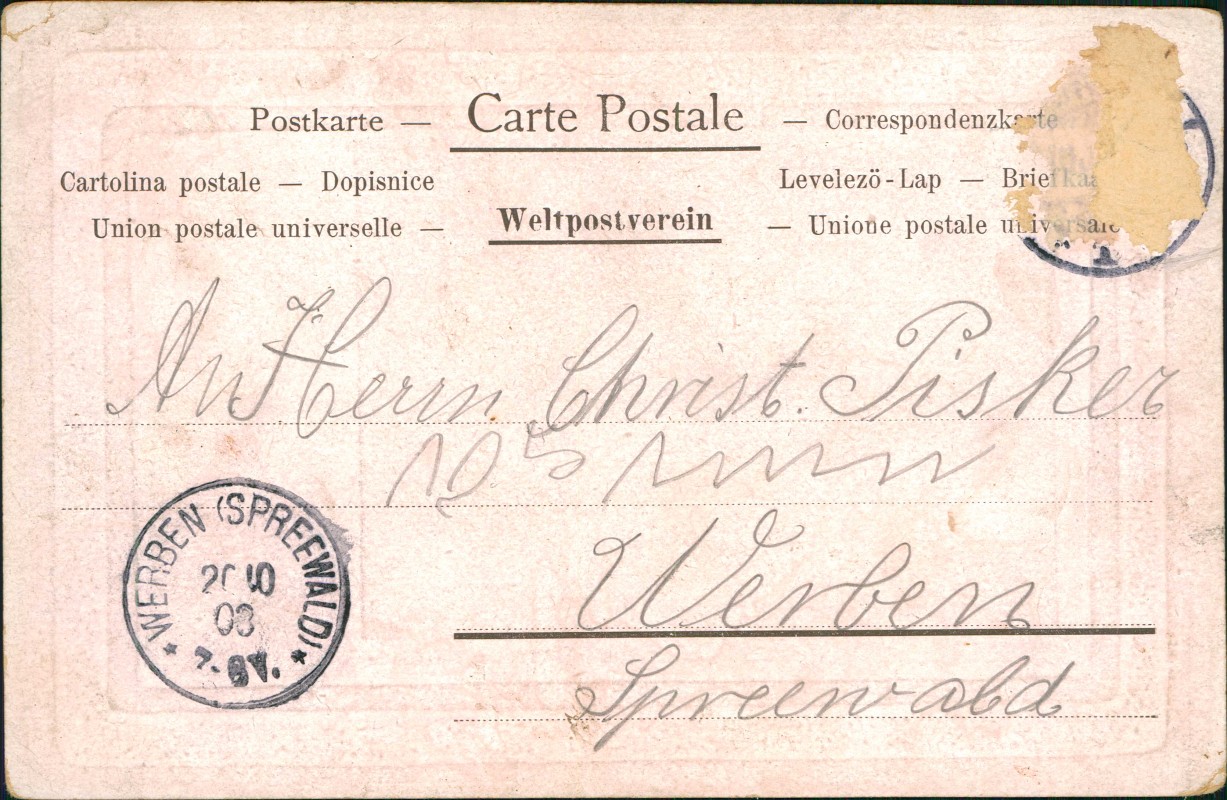 Postkarte — Carte Postale — Correspondenzkarte
Cartolina postale — Dopisnice
Levelezö-Lap — Brief
Union postale universelle — Weltpostverein — Unione postale universale
An Herrn Christ. Pisker
Werben
Spreewald
WERBEN (SPREEWALD)
7-8V.